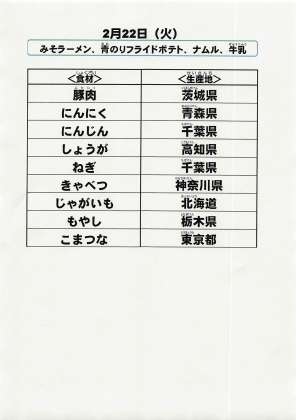 2月22日（火）
みそラーメン、青のりフライドポテト、ナムル、牛乳
＜食材＞ ＜生産地＞
豚肉 茨城県
にんにく 青森県
にんじん 千葉県
しょうが 高知県
ねぎ 千葉県
きゃべつ 神奈川県
じゃがいも 北海道
もやし 栃木県
こまつな 東京都